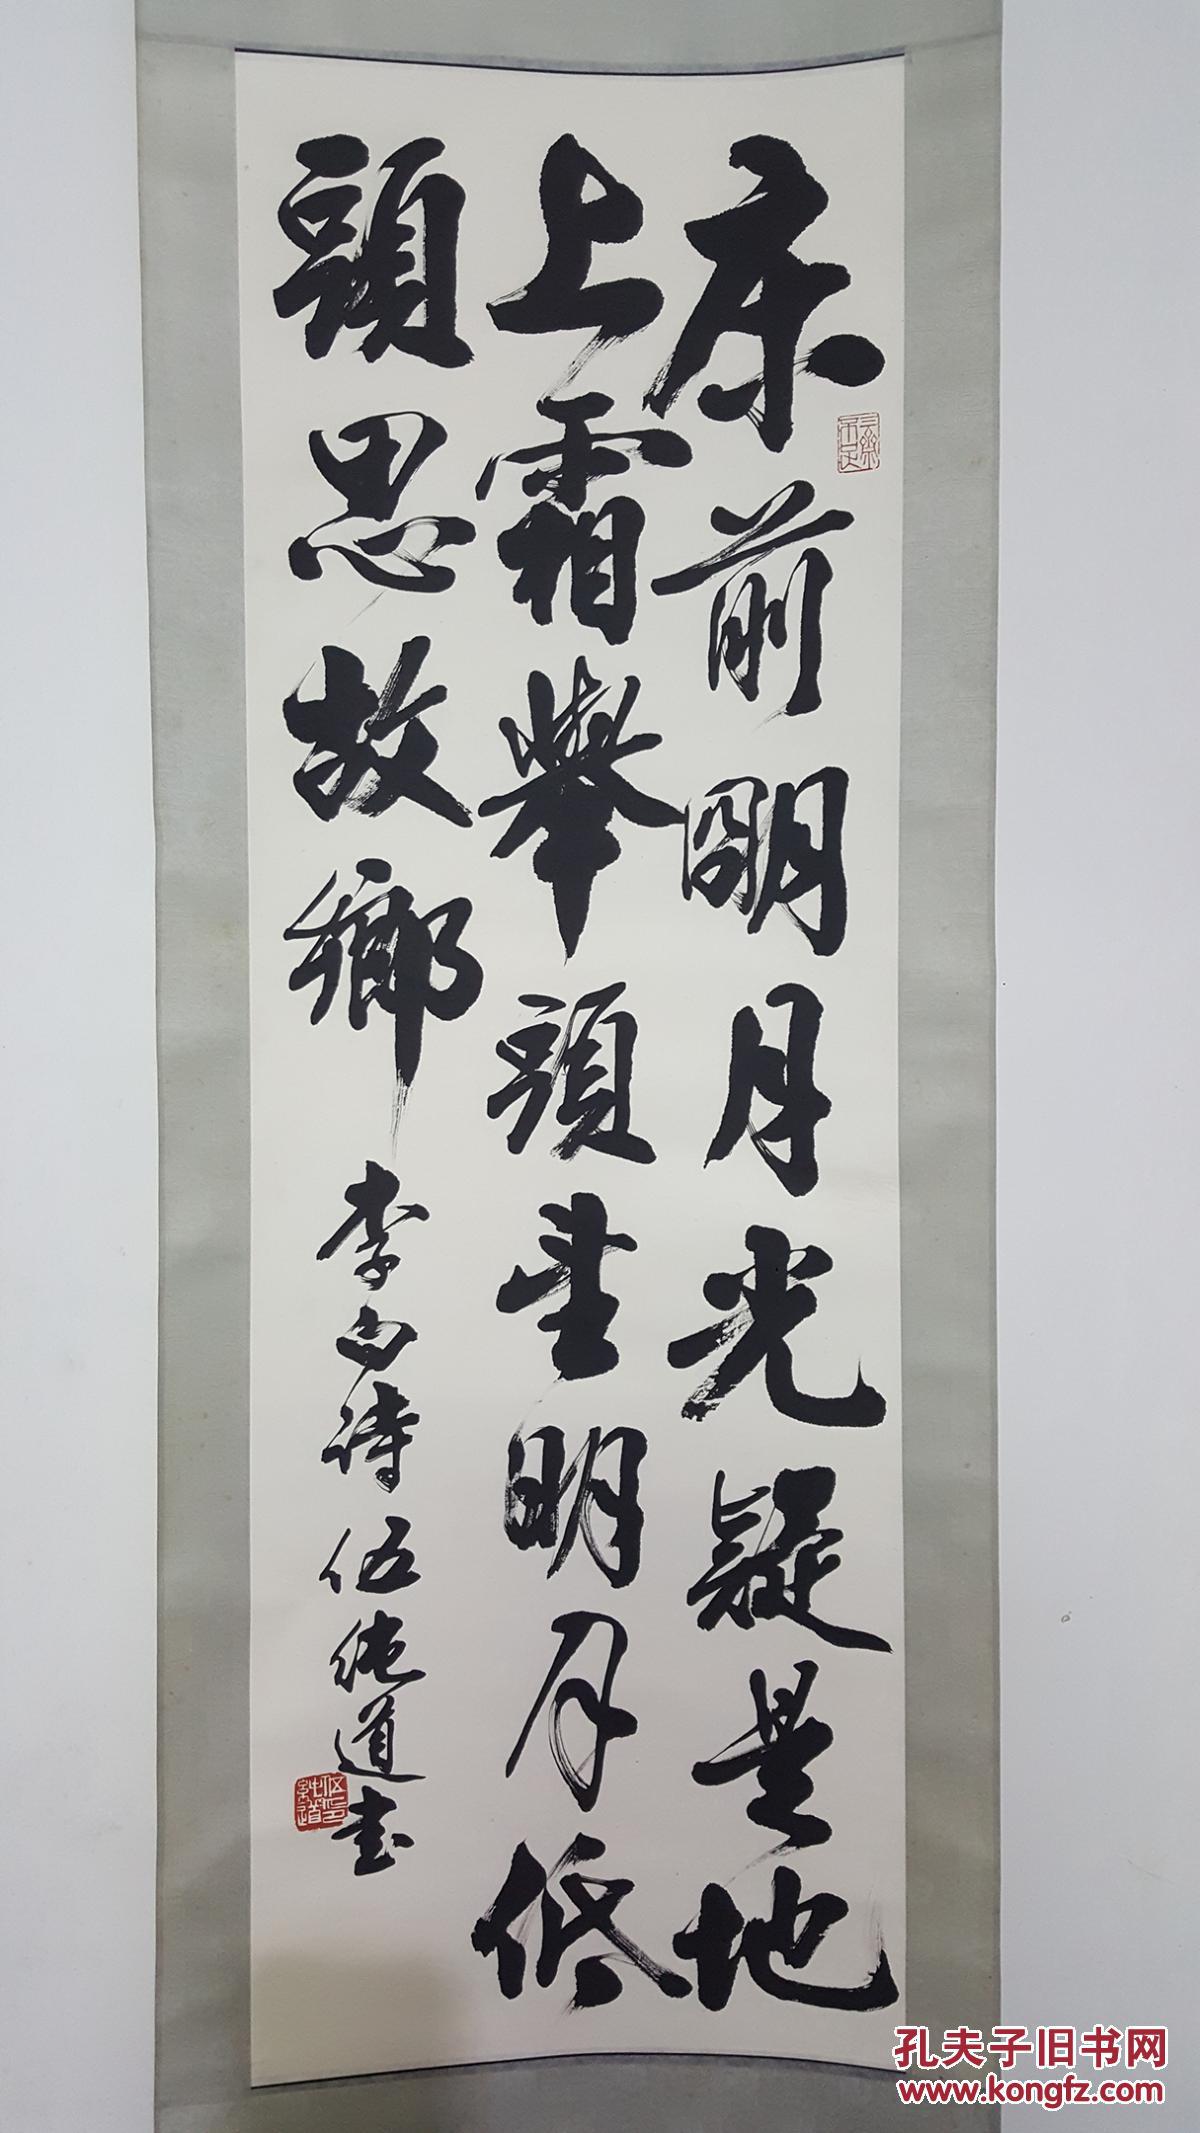 床前明月光疑是地
上霜舉頭望明月低
頭思故鄉
李白詩 伍純道書
伍純道印
孔夫子旧书网
www.kongfz.com